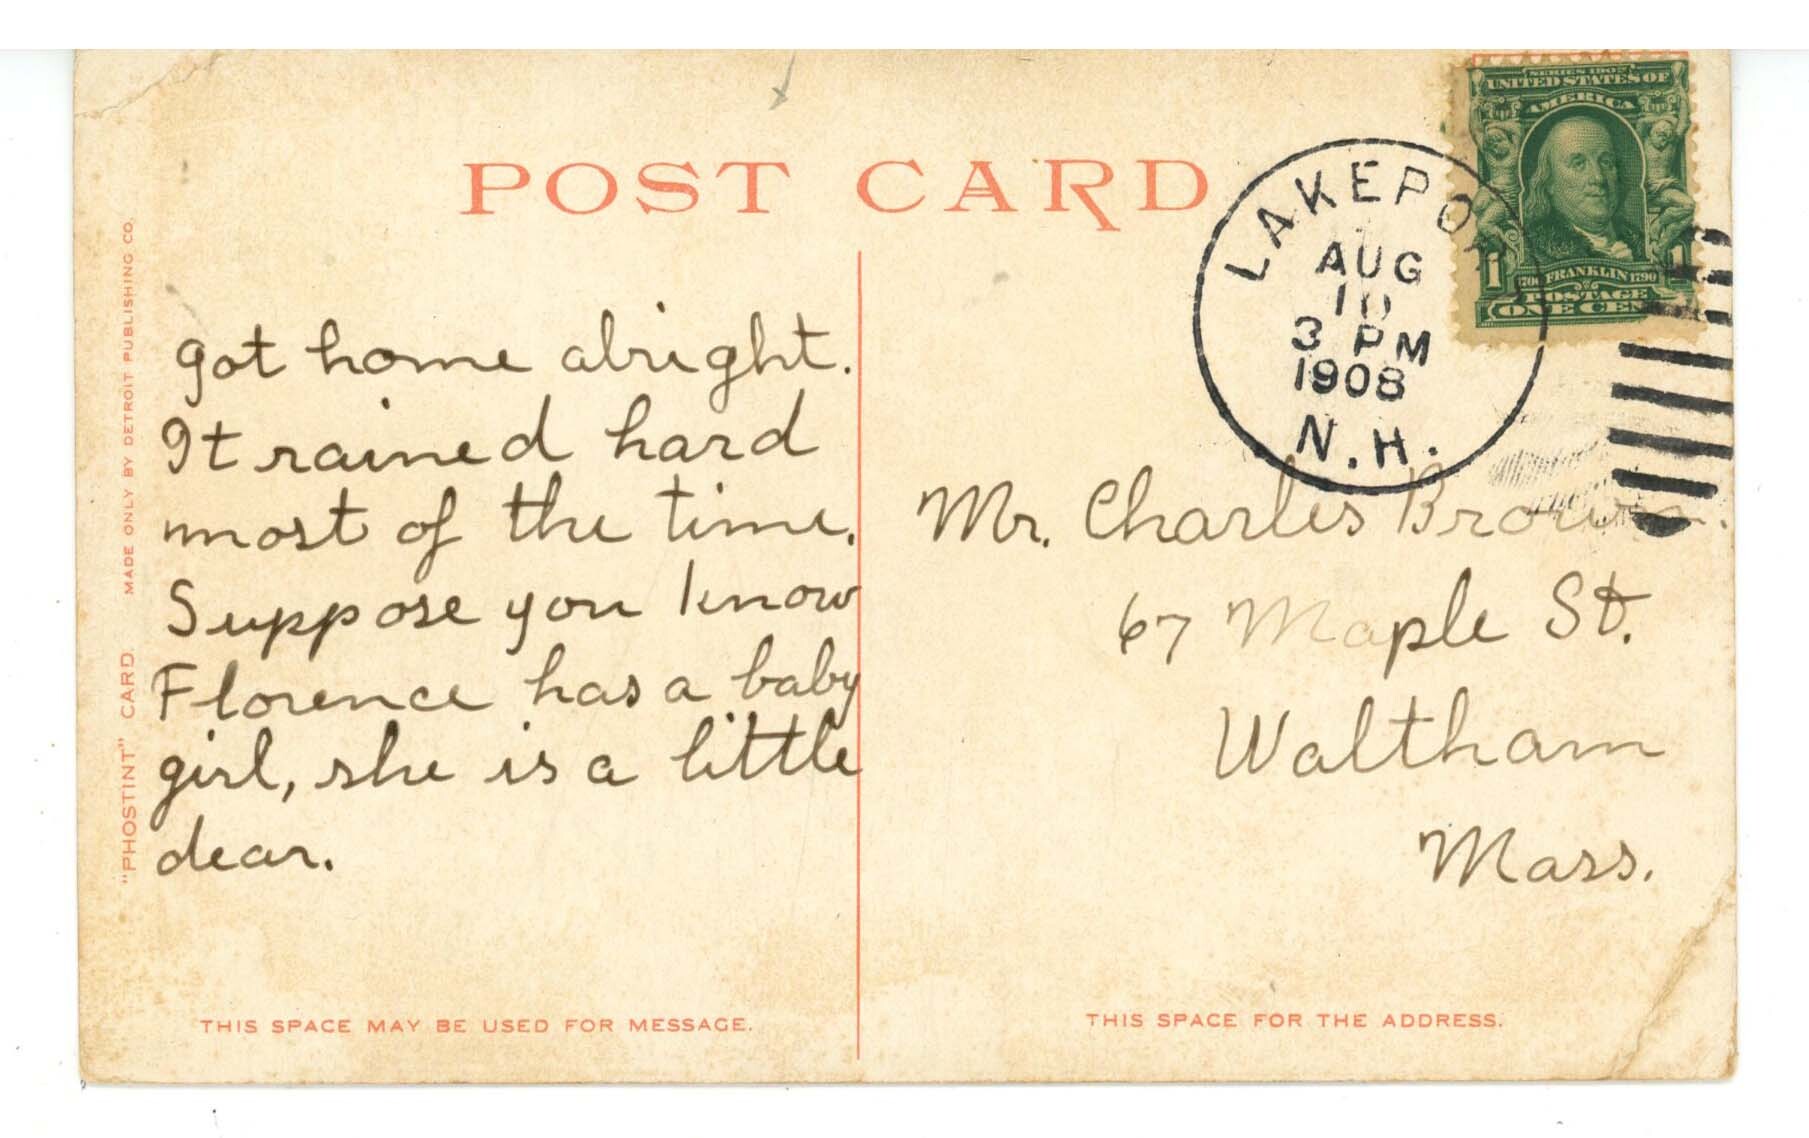 POST CARD
SERIES 1902
UNITED STATES OF
AMERICA
1706 FRANKLIN 1790
1 1
POSTAGE
ONE CENT
LAKEPORT
AUG
10
3 PM
1908
N.H.
got home alright.
It rained hard
most of the time.
Suppose you know
Florence has a baby
girl, she is a little
dear.
Mr. Charles Brown.
67 Maple St.
Waltham
Mass.
"PHOSTINT" CARD. MADE ONLY BY DETROIT PUBLISHING CO.
THIS SPACE MAY BE USED FOR MESSAGE.
THIS SPACE FOR THE ADDRESS.